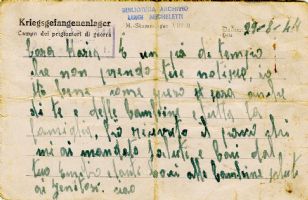 Kriegsgefangenenlager
Campo dei prigionieri di guerra
BIBLIOTECA ARCHIVIO
LUIGI MICHELETTI
Data
29-6-44
Cara Maria è un po di tempo
che non prendo tue notizie, io
sto bene come spero di sara anche
di te e delle bambine e tutta la
famiglia, ho ricevuto il pacco che
mi ai mandato saluti e baci dal
tuo tanti baci alle bambine saluti
ai genitori. ciao